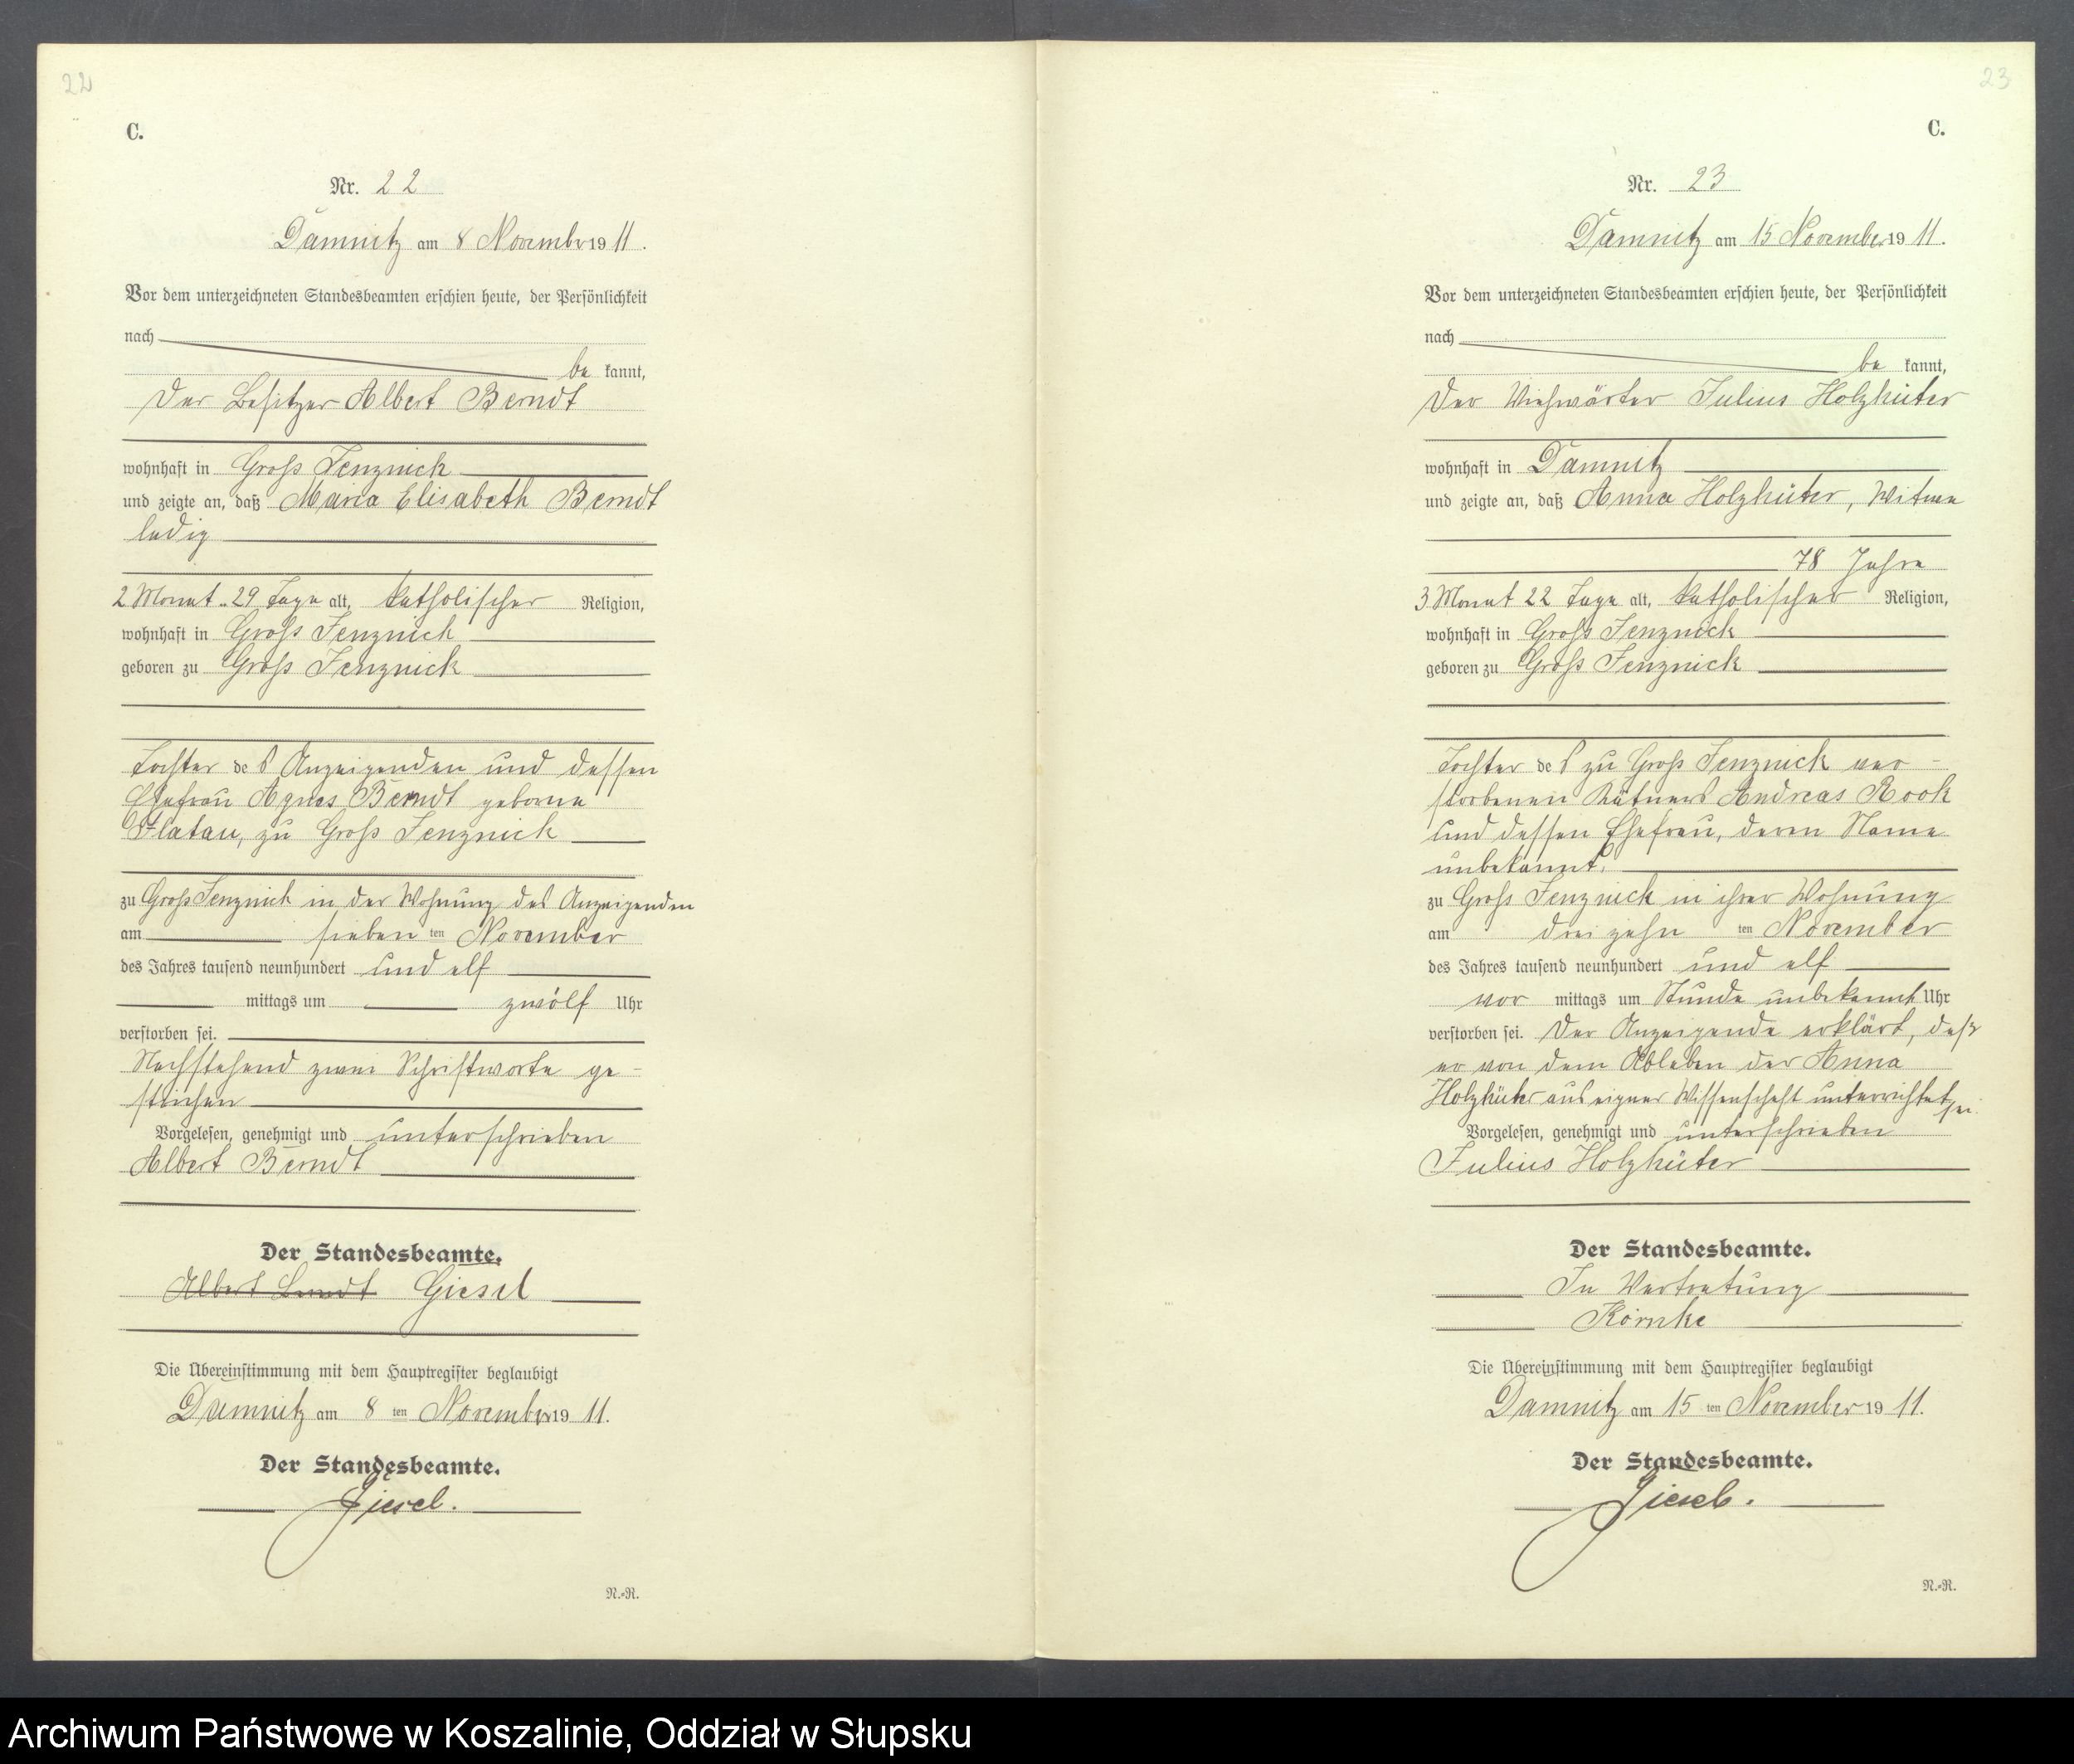 22
C.
Nr. 22
Damnitz am 8 Novembr 1911.
Vor dem unterzeichneten Standesbeamten erschien heute, der Persönlichkeit
nach
be kannt,
Der Besitzer Albert Berndt
wohnhaft in Groß Jenznick
und zeigte an, daß Maria Elisabeth Berndt
ledig
2 Monat 29 Tage alt, katholischer Religion,
wohnhaft in Groß Jenznick
geboren zu Groß Jenznick
Tochter des Anzeigenden und dessen
Ehefrau Agnes Berndt geborne
Flatau, zu Groß Jenznick
zu Groß Jenznick in der Wohnung des Anzeigenden
am sieben ten November
des Jahres tausend neunhundert und elf
mittags um zwölf Uhr
verstorben sei.
Nachstehend zwei Schriftworte ge-
strichen
Vorgelesen, genehmigt und unterschrieben
Albert Berndt
Der Standesbeamte.
Albert Berndt Giesel
Die Übereinstimmung mit dem Hauptregister beglaubigt
Damnitz am 8 ten November 1911.
Der Standesbeamte.
Giesel.
N.-R.
23
C.
Nr. 23
Damnitz am 15 November 1911.
Vor dem unterzeichneten Standesbeamten erschien heute, der Persönlichkeit
nach
be kannt,
Der Viehwärter Julius Holzhüter
wohnhaft in Damnitz
und zeigte an, daß Anna Holzhüter, Witwe
78 Jahre
3 Monat 22 Tage alt, katholischer Religion,
wohnhaft in Groß Jenznick
geboren zu Groß Jenznick
Tochter des zu Groß Jenznick ver-
storbenen Kätners Andreas Rook
und dessen Ehefrau, deren Name
unbekannt.
zu Groß Jenznick in ihrer Wohnung
am dreizehn ten November
des Jahres tausend neunhundert und elf
vor mittags um Stunde unbekannt Uhr
verstorben sei. Der Anzeigende erklärt, daß
er von dem Ableben der Anna
Holzhüter aus eigner Wissenschaft unterrichtet sei.
Vorgelesen, genehmigt und unterschrieben
Julius Holzhüter
Der Standesbeamte.
In Vertretung
Körnke
Die Übereinstimmung mit dem Hauptregister beglaubigt
Damnitz am 15 ten November 1911.
Der Standesbeamte.
Giesel.
N.-R.
Archiwum Państwowe w Koszalinie, Oddział w Słupsku